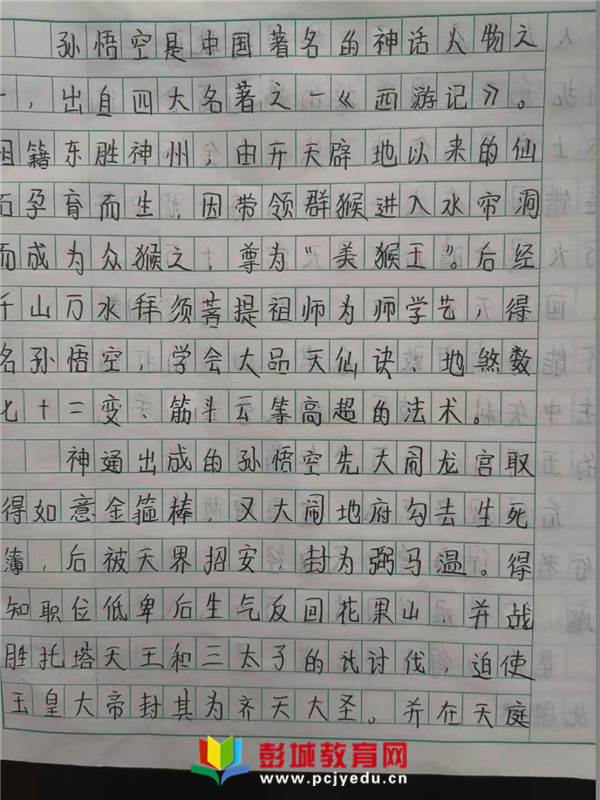 孙悟空是中国著名的神话人物之
一，出自四大名著之一《西游记》。
祖籍东胜神州，由开天辟地以来的仙
石孕育而生，因带领群猴进入水帘洞
而成为众猴之，尊为“美猴王”。后经
千山万水拜须菩提祖师为师学艺，得
名孙悟空，学会大品天仙诀、地煞数
七十二变、筋斗云等高超的法术。
神通出成的孙悟空先大闹龙宫取
得如意金箍棒，又大闹地府勾去生死
簿，后被天界招安，封为弼马温。得
知职位低卑后生气反回花果山，并战
胜托塔天王和三太子的讨伐，迫使
玉皇大帝封其为齐天大圣。并在天庭
彭城教育网
www.pcjyedu.cn